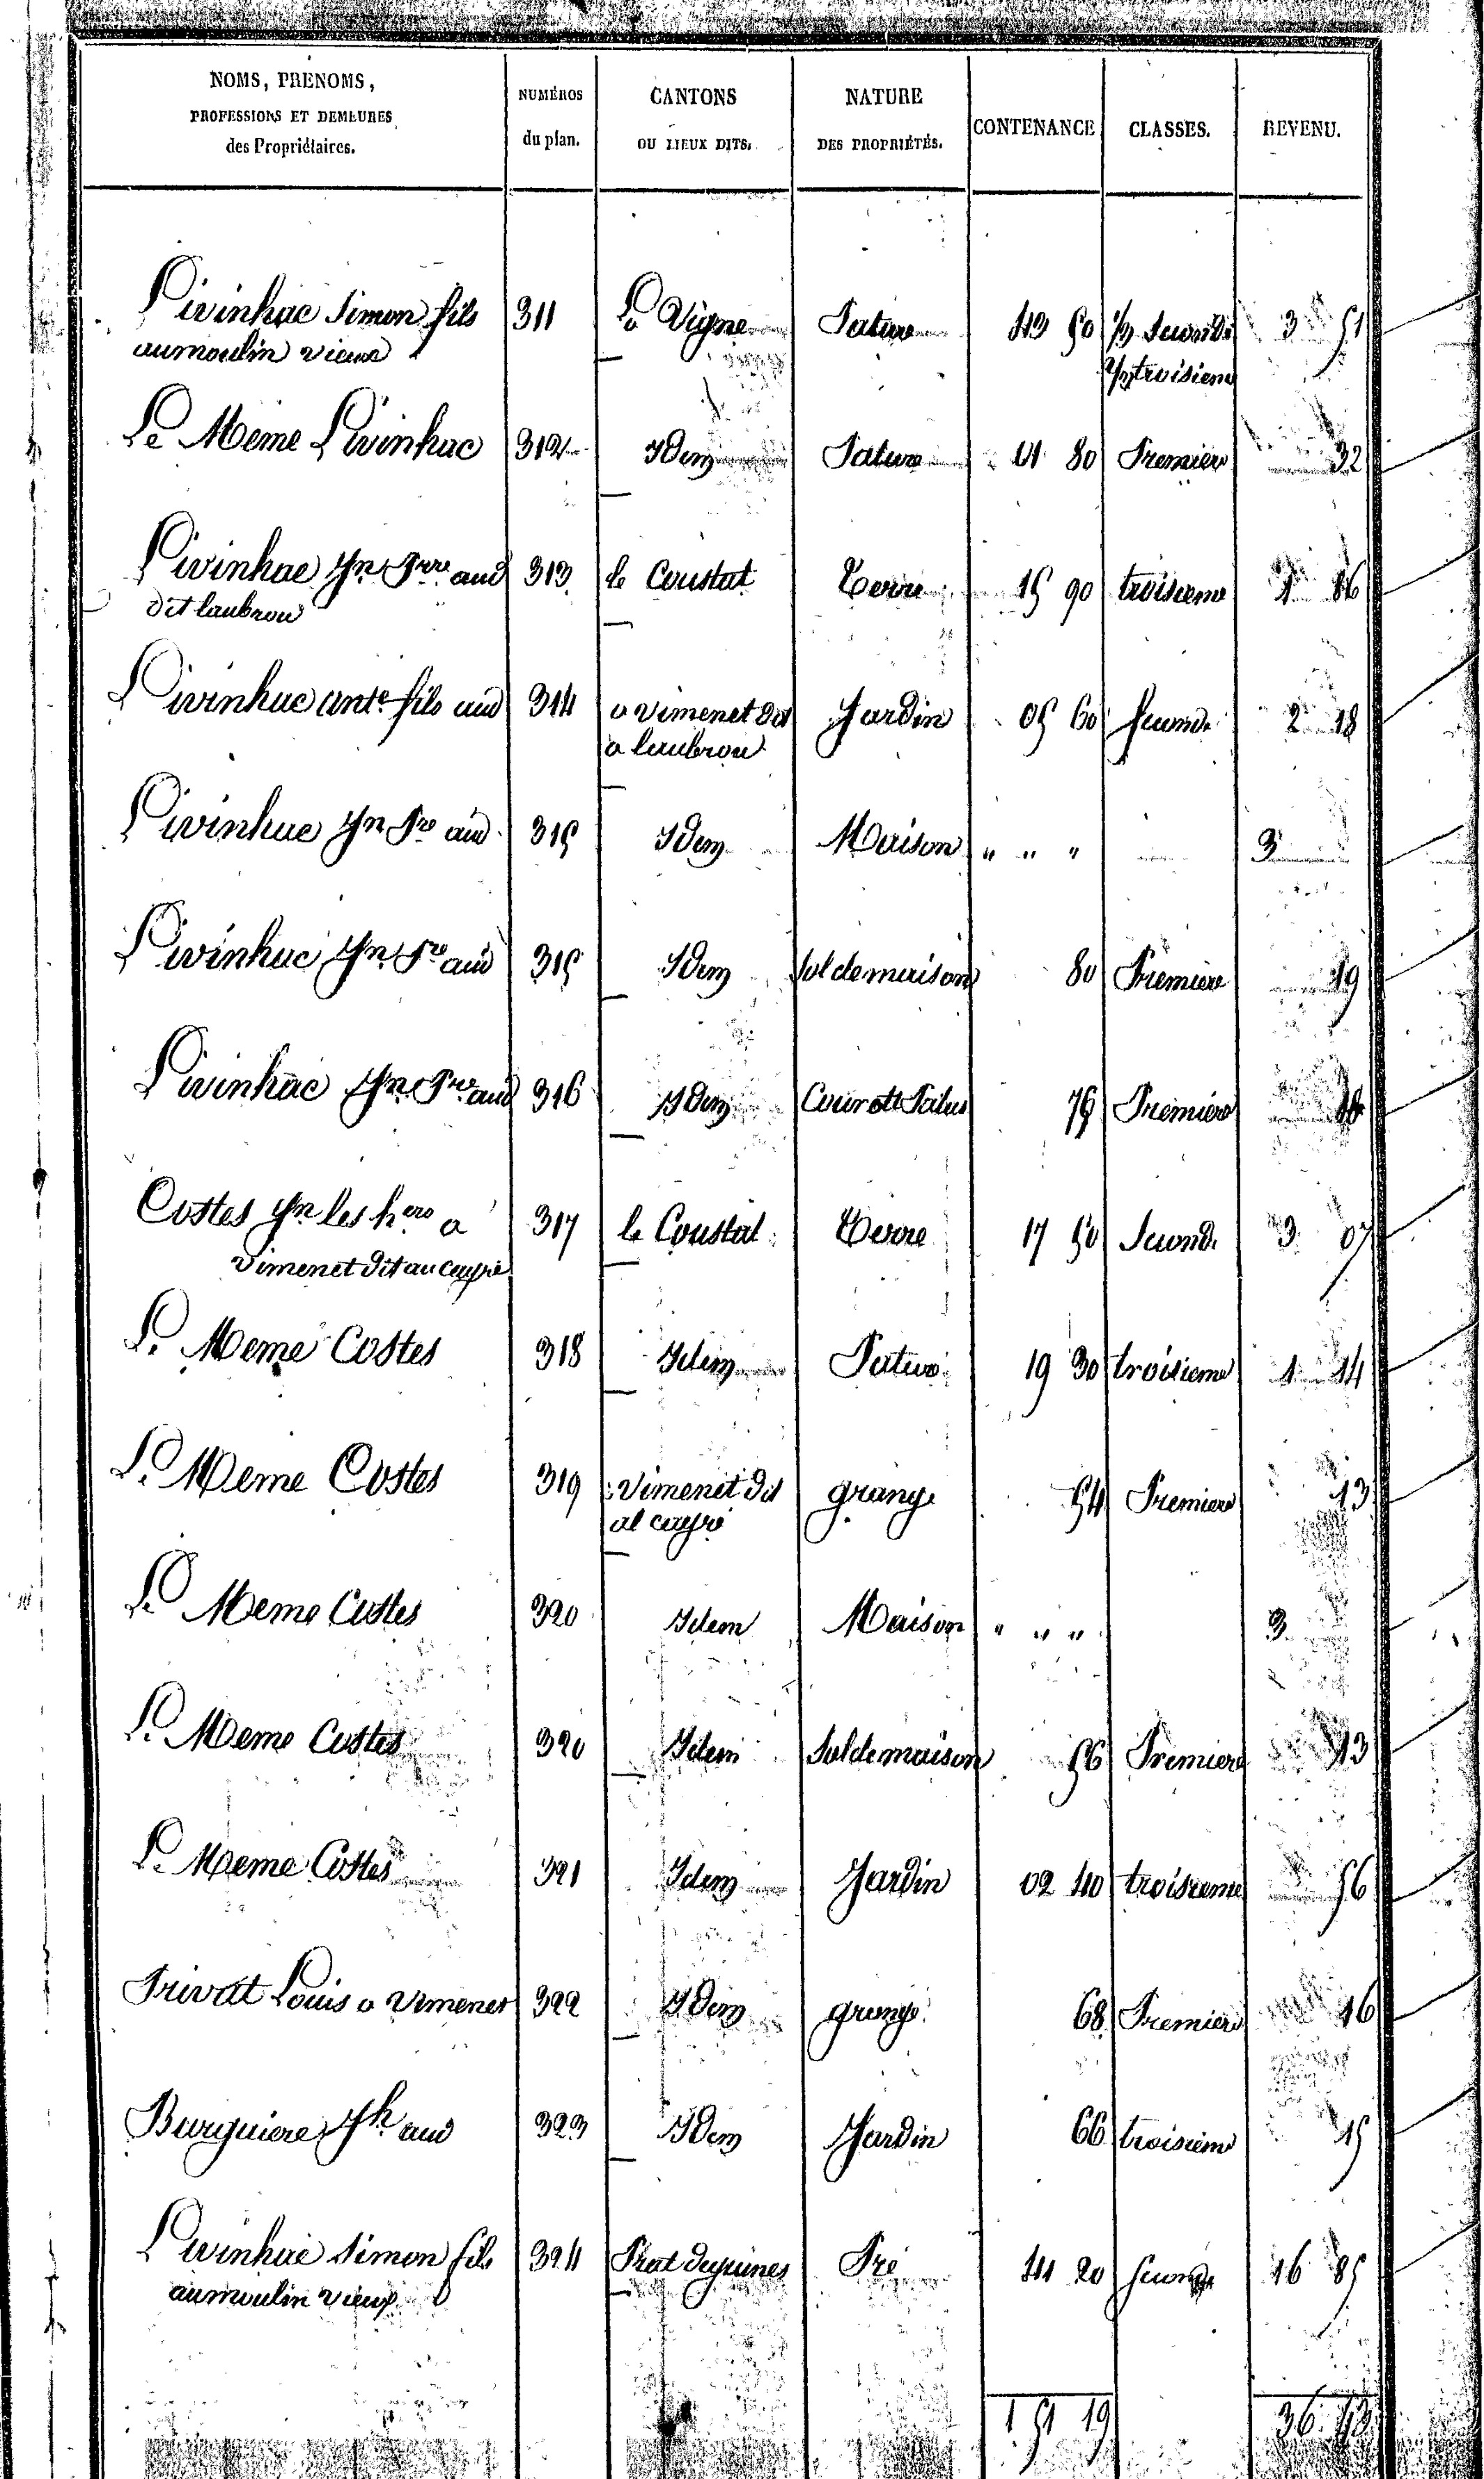 NOMS, PRENOMS, PROFESSIONS ET DEMEURES des Propriétaires. NUMÉROS du plan. CANTONS OU LIEUX DITS. NATURE DES PROPRIÉTÉS. CONTENANCE CLASSES. REVENU.
Livinhac Simon fils 311 La Vigne Pature 43 50 1/2 Seconde 3 51
au moulin vieux 1/2 troisieme
Le Meme Livinhac 312 Idem Pature 01 80 Premiere 32
Livinhac Jn Prre aud 313 le Coustat Terre 15 90 troisieme 1 86
dit laubrou
Livinhac ante fils aud 314 a vimenet dit Jardin 05 60 Seconde 2 18
a laubrou
Livinhac Jn Pre aud 315 Idem Maison " " " 3
Livinhac Jn Pre aud 315 Idem Sol de maison 80 Premiere 19
Livinhac Jn Prre aud 316 Idem Cour et Patus 75 Premiere 18
Costes Jn les hers a 317 le Coustat Terre 17 50 Seconde 3 07
vimenet dit au cayre
Le Meme Costes 318 Idem Pature 19 30 troisieme 1 14
Le Meme Costes 319 a Vimenet dit grange 54 Premiere 13
al cayre
Le Meme Costes 320 Idem Maison " " " 3
Le Meme Costes 320 Idem Sol de maison 56 Premiere 13
Le Meme Costes 321 Idem Jardin 02 40 troisieme 56
Privat Louis a Vimenet 322 Idem grange 68 Premiere 16
Burguiere Jh aud 323 Idem Jardin 66 troisieme 15
Livinhac Simon fils 324 Prat Pré 41 20 Seconde 16 85
au moulin vieux
1 51 19 36 43